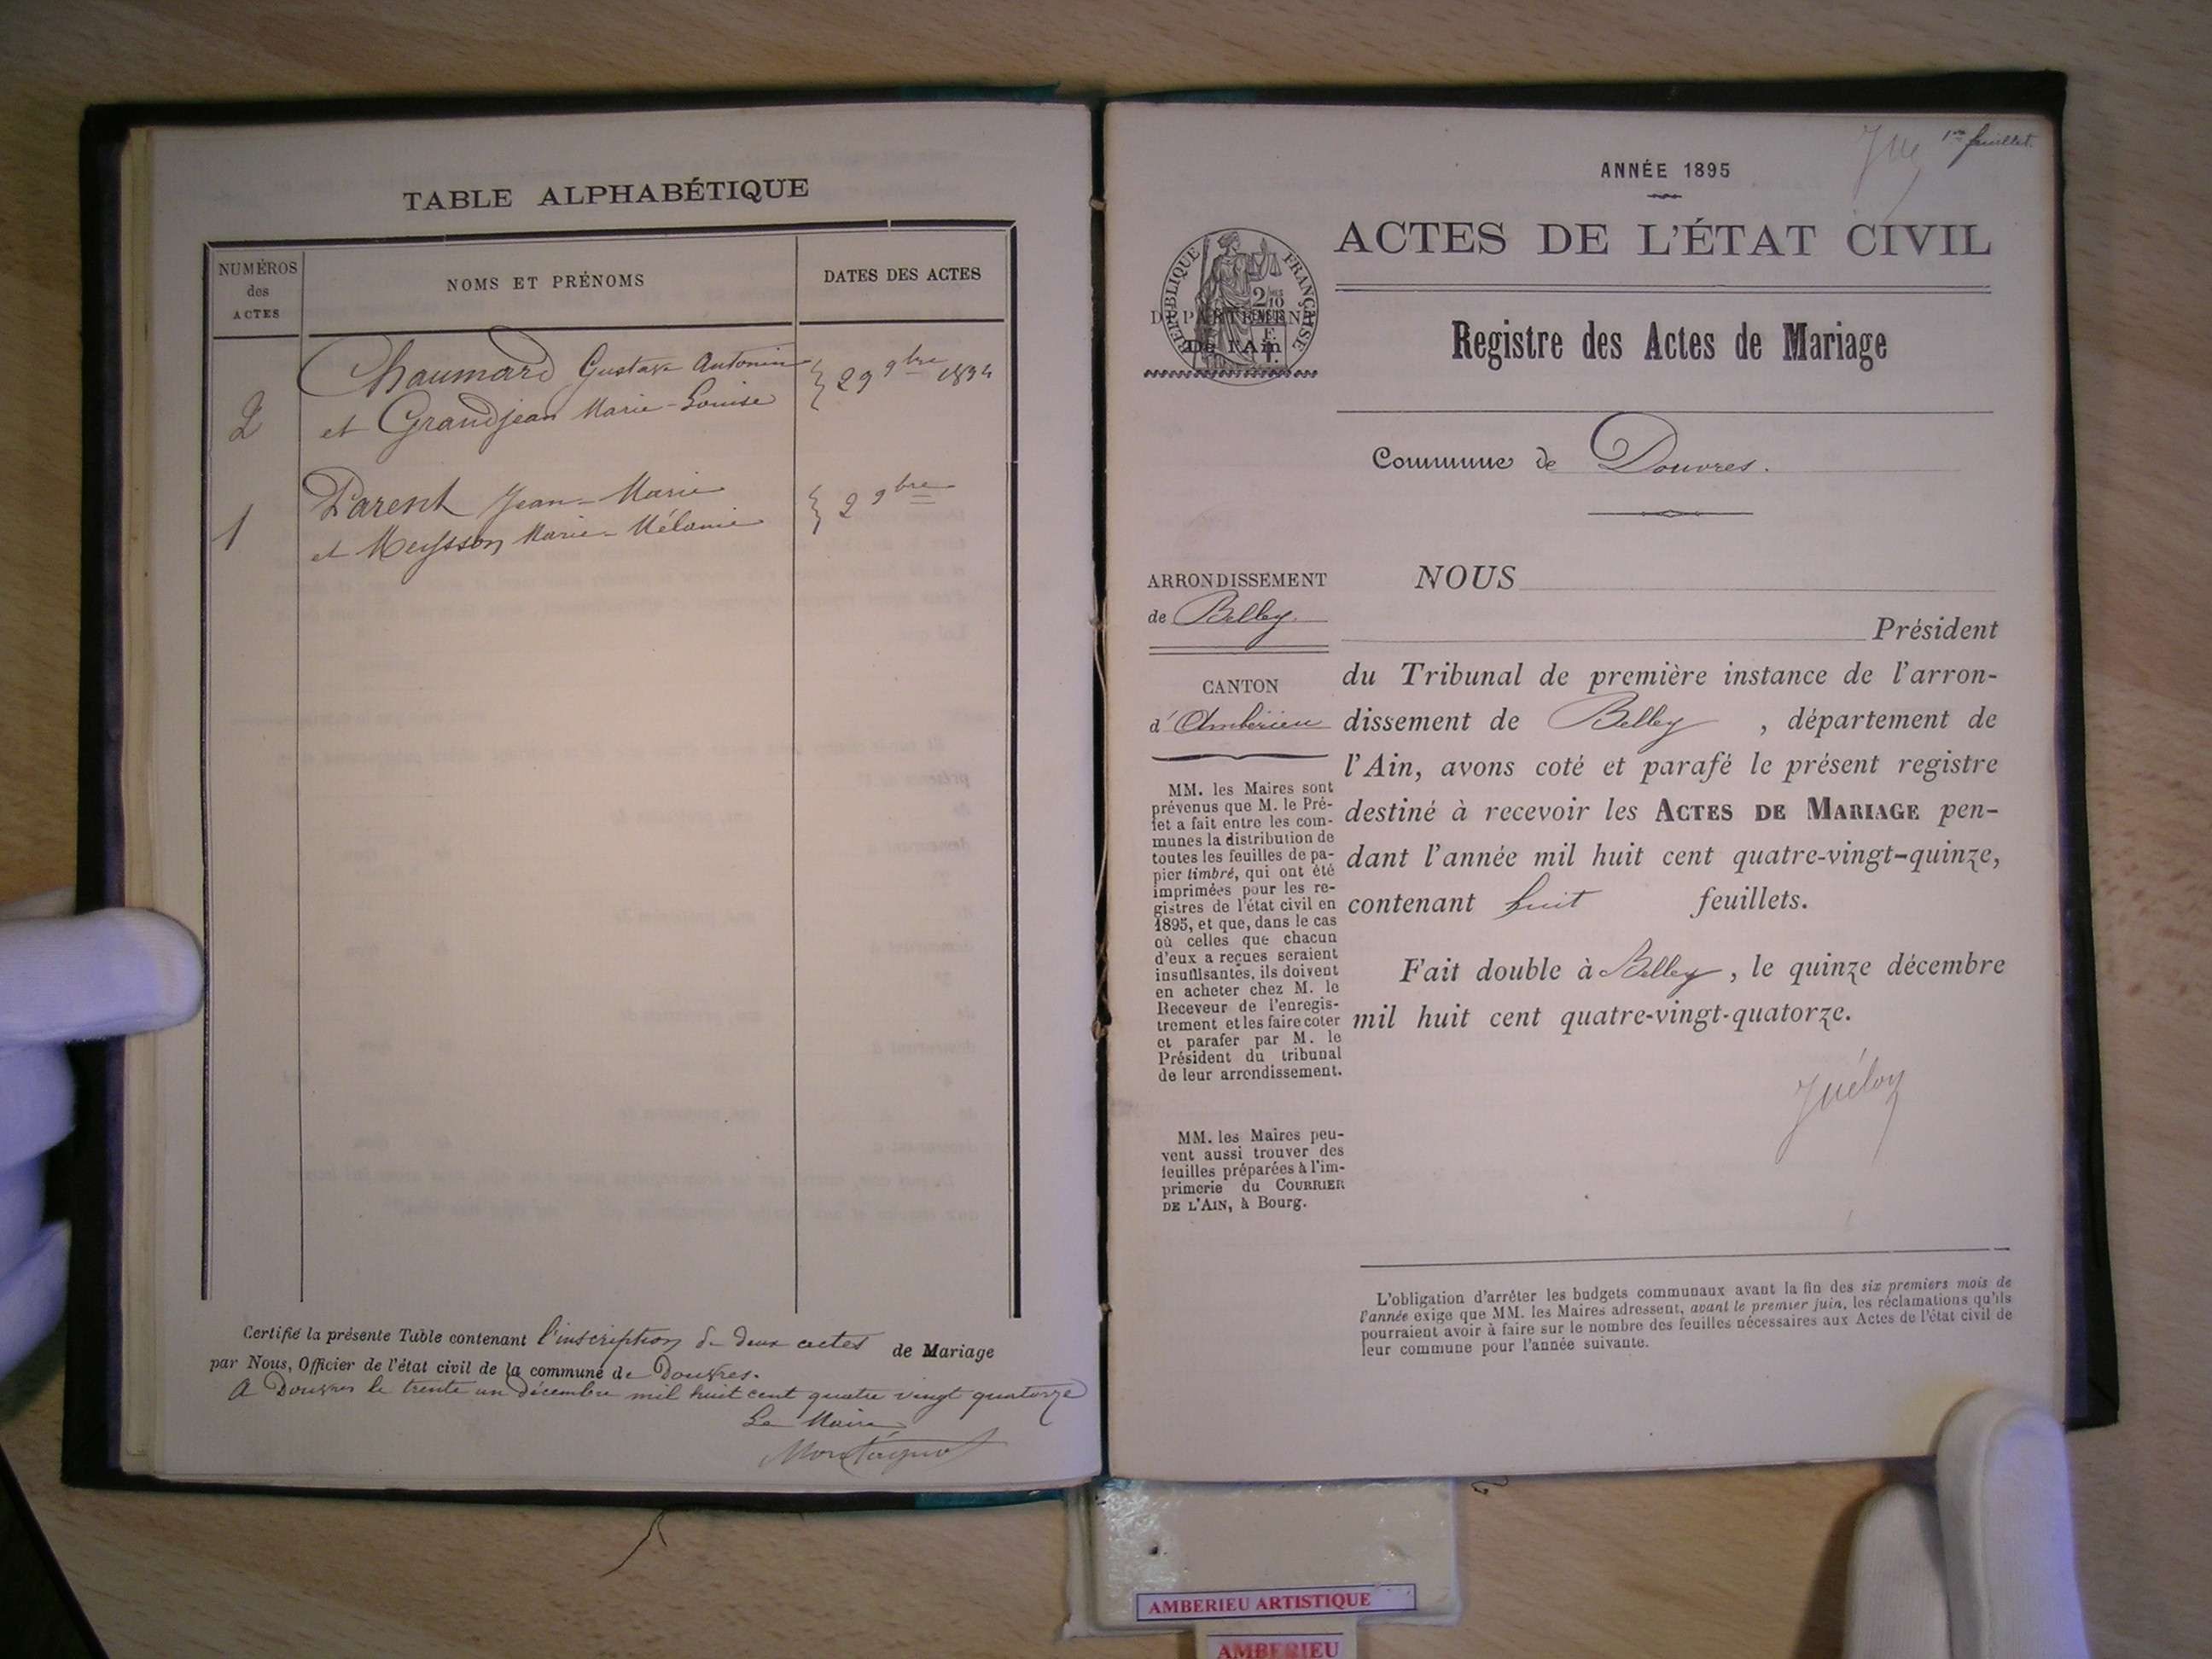 TABLE ALPHABÉTIQUE
NUMÉROS
des
ACTES
NOMS ET PRÉNOMS
DATES DES ACTES
2
Chaumard Gustave Antonin
et Grandjean Marie-Louise
29 9bre 1894
1
Parent Jean-Marie
et Meysson Marie-Mélanie
2 9bre
Certifié la présente Table contenant l'inscription de deux actes de Mariage
par Nous, Officier de l'état civil de la commune de Douvres.
A Douvres le trente un décembre mil huit cent quatre vingt quatorze
Le Maire
1er feuillet.
ANNÉE 1895
ACTES DE L'ÉTAT CIVIL
RÉPUBLIQUE FRANÇAISE
2/10
EN SUS
DÉPARTEMENT
De l'Ain
Registre des Actes de Mariage
Commune de Douvres.
ARRONDISSEMENT
de Belley.
CANTON
d'Ambérieu
MM. les Maires sont
prévenus que M. le Pré-
fet a fait entre les com-
munes la distribution de
toutes les feuilles de pa-
pier timbré, qui ont été
imprimées pour les re-
gistres de l'état civil en
1895, et que, dans le cas
où celles que chacun
d'eux a reçues seraient
insuffisantes, ils doivent
en acheter chez M. le
Receveur de l'enregis-
trement et les faire coter
et parafer par M. le
Président du tribunal
de leur arrondissement.
MM. les Maires peu-
vent aussi trouver des
feuilles préparées à l'im-
primerie du COURRIER
DE L'AIN, à Bourg.
NOUS
Président
du Tribunal de première instance de l'arron-
dissement de Belley , département de
l'Ain, avons coté et parafé le présent registre
destiné à recevoir les ACTES DE MARIAGE pen-
dant l'année mil huit cent quatre-vingt-quinze,
contenant huit feuillets.
Fait double à Belley , le quinze décembre
mil huit cent quatre-vingt-quatorze.
L'obligation d'arrêter les budgets communaux avant la fin des six premiers mois de
l'année exige que MM. les Maires adressent, avant le premier juin, les réclamations qu'ils
pourraient avoir à faire sur le nombre des feuilles nécessaires aux Actes de l'état civil de
leur commune pour l'année suivante.
AMBERIEU ARTISTIQUE
AMBERIEU